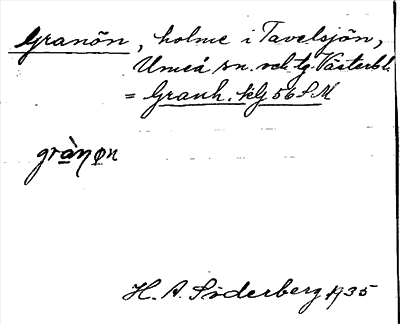 Granön, holme i Tavelsjön,
Umeå sn. och tg. Västerb.l.
= Granh. Klg 56 S.M
grànøn
H. A. Söderberg 1935